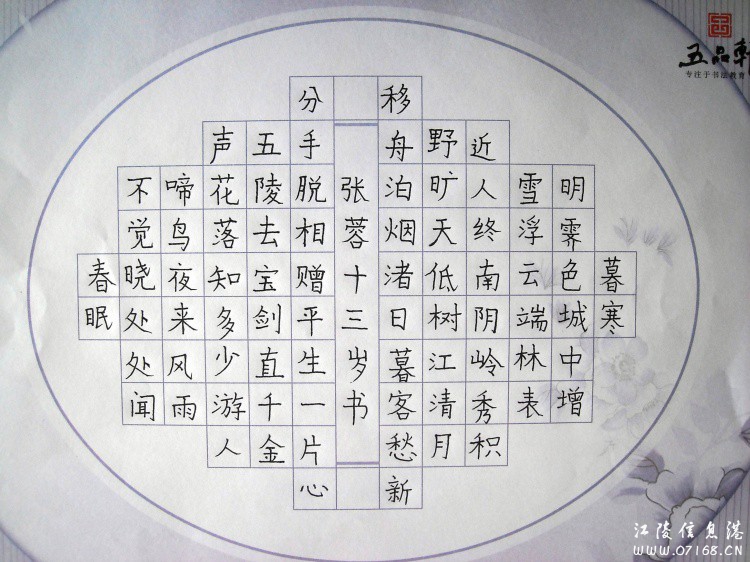 春眠
不觉晓处处闻
啼鸟夜来风雨
声花落知多少游人
五陵去宝剑直千金
分手脱相赠平生一片心
张蓉十三岁书
移舟泊烟渚日暮客愁新
野旷天低树江清月
近人终南阴岭秀积
雪浮云端林表
明霁色城中增
暮寒
五品轩
专注于书法教育
江陵信息港
WWW.07168.CN